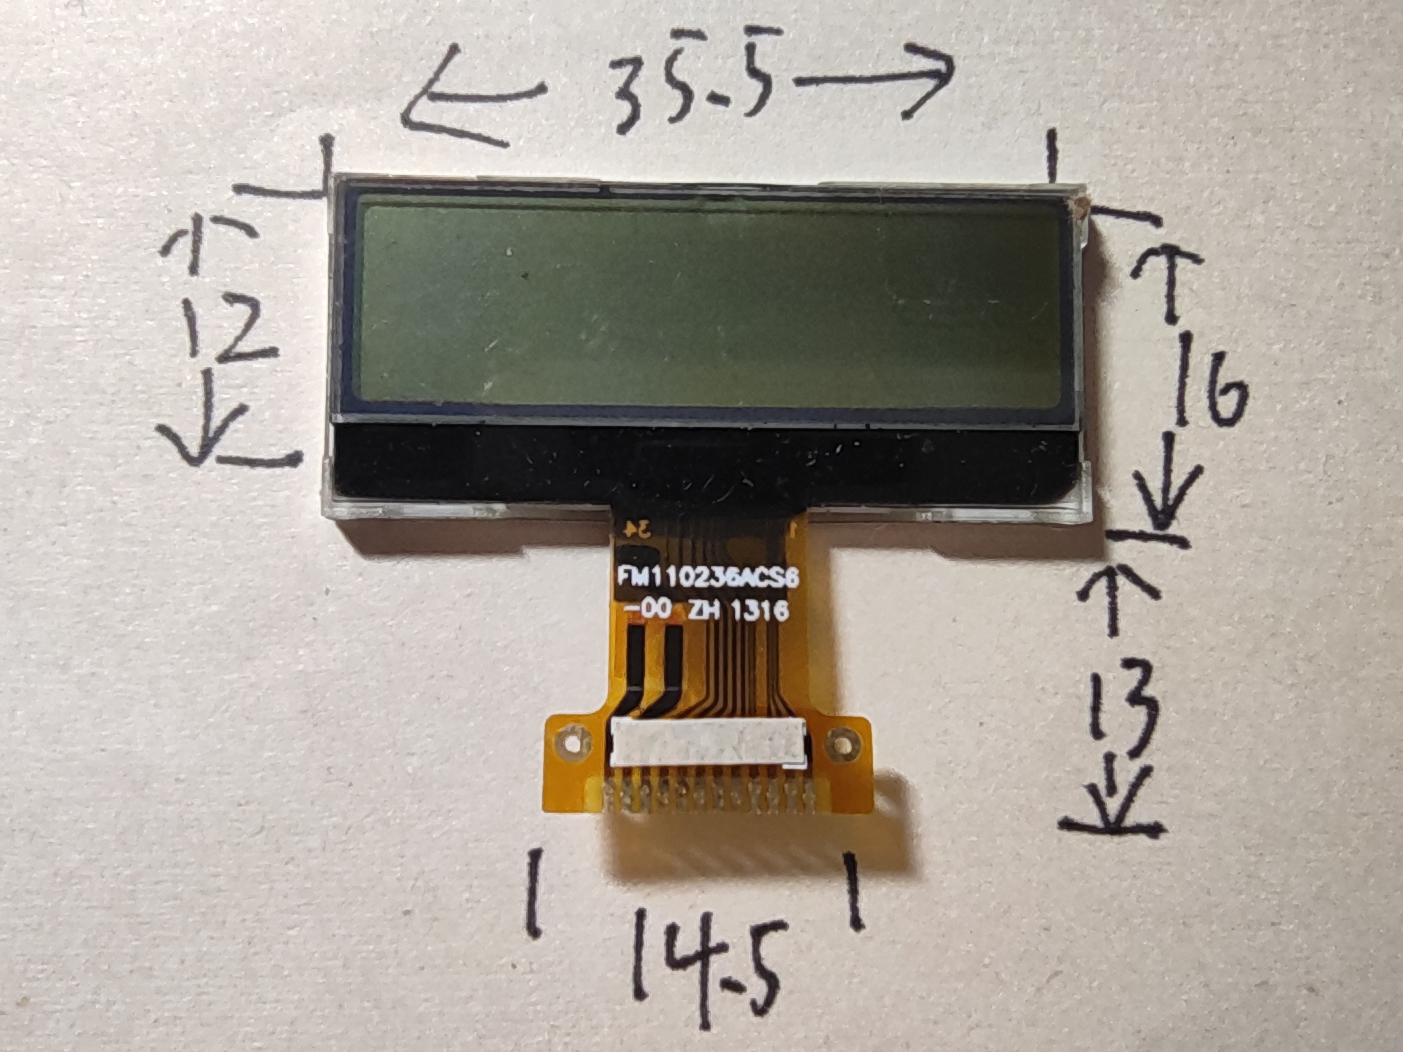 35.5
12
16
34 1
FM110236ACS6
-00 ZH 1316
13
14.5